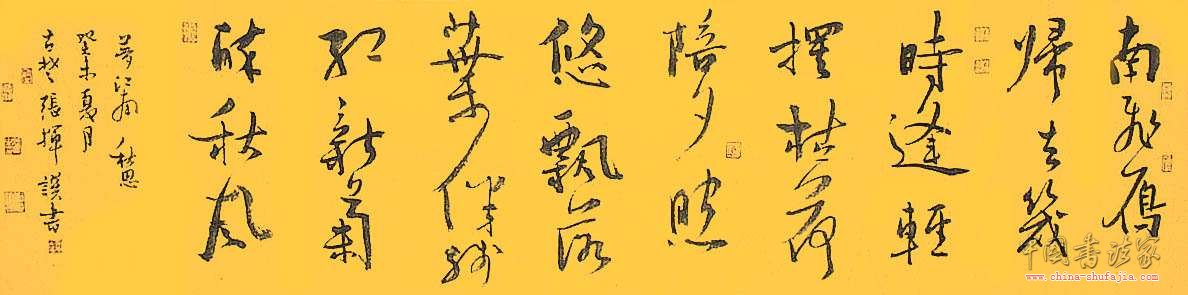 南飛雁
歸去幾
時逢輕
擺枯荷
陪夕照
悠飄落
葉伴殘
紅新菊
醉秋風
夢江南 秋思
癸未夏月
古楚張揮 譔書
中国书法家
www.china-shufajia.com